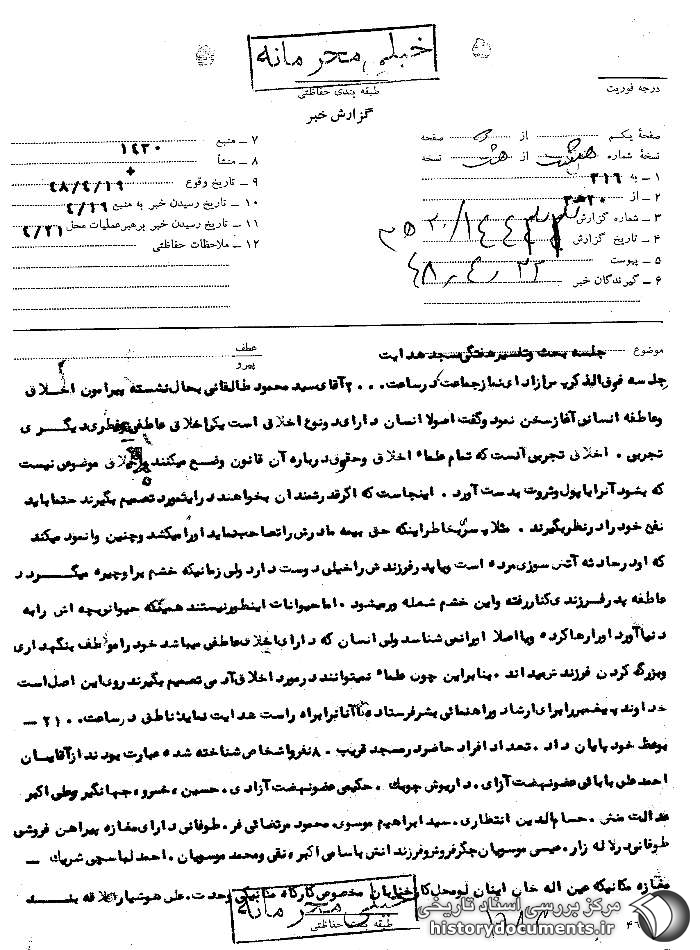 خیلی محرمانه
طبقه بندی حفاظتی
گزارش خبر
درجه فوریت
صفحهٔ یکم از صفحه
نسخهٔ شماره هشت از هشت نسخه
۱ ـ به ۳۱۶
۲ ـ از
۳ ـ شماره گزارش
۴ ـ تاریخ گزارش
۵ ـ پیوست
۶ ـ گیرندگان خبر
۷ ـ منبع ۱۴۳۰
۸ ـ منشأ
۹ ـ تاریخ وقوع ۴۸/۴/۱۹
۱۰ ـ تاریخ رسیدن خبر به منبع ۴/۱۹
۱۱ ـ تاریخ رسیدن خبر برهبر عملیات محل ۴/۲۱
۱۲ ـ ملاحظات حفاظتی
موضوع جلسه بحث و تفسیر هفتگی مسجد هدایت
عطف
پیرو
جلسه فوق الذکر پس از ادای نماز جماعت در ساعت آقای سید محمود طالقانی بحال نشسته پیرامون اخلاق
و عاطفه انسانی آغاز سخن نمود و گفت اصولا انسان دارای دو نوع اخلاق است یکی اخلاق عاطفی و فطری دیگری
تجربی . اخلاق تجربی آنست که تمام علماء اخلاق و حقوق درباره آن قانون وضع میکنند اخلاق موضوعی نیست
که بشود آنرا با پول و ثروت بدست آورد . اینجاست که اگر قدرتمندان بخواهند در اینمورد تصمیم بگیرند حتما باید
نفع خود را در نظر بگیرند . مثلا پسر بخاطر اینکه حق بیمه مادرش را تصاحب نماید او را میکشد و چنین وانمود میکند
که او در حادثه آتش سوزی مرده است و یا پدر فرزندش را خیلی دوست دارد ولی زمانیکه خشم بر او چیره میگردد
عاطفه پدر فرزندی کنار رفته و این خشم شعله ور میشود . اما حیوانات اینطور نیستند همینکه حیوانی بچه اش را به
دنیا آورد او را رها کرده و یا اصلا او را نمی شناسد ولی انسان که دارای اخلاق عاطفی میباشد خود را موظف بنگهداری
و بزرگ کردن فرزندش میداند . بنابراین چون علماء نمیتوانند در مورد اخلاق آدمی تصمیم بگیرند روی این اصل است
خداوند پیغمبر را برای ارشاد و راهنمائی بشر فرستاده تا آنانرا براه راست هدایت نماید ناطق در ساعت ۲۱۰۰ ـ
بوعظ خود پایان داد . تعداد افراد حاضر در مسجد قریب ۸۰ نفر و اشخاص شناخته شده عبارت بودند از آقایان
احمد علی بابائی عضو نهضت آزادی . داریوش . حکیمی عضو نهضت آزادی . حسین ، خسرو ، جهانگیر و علی اکبر
عدالت منش . حسام الدین انتظاری . سید ابراهیم موسوی محمود مرتضائی فر . طوفانی دارای مغازه پیراهن فروشی
طوفانی در لاله زار . عیسی موسویان جگرفروش و فرزندانش باسامی اکبر ، نقی و محمد موسویان . احمد لباسچی شریک ـ
مغازه مکانیکی عین اله خان اینان لو محل کار خیابان مخصوص کارگاه مکانیکی وحدت . علی هوشیار علاقه بند
خیلی محرمانه
طبقه بندی حفاظتی
مرکز بررسی اسناد تاریخی
historydocuments.ir